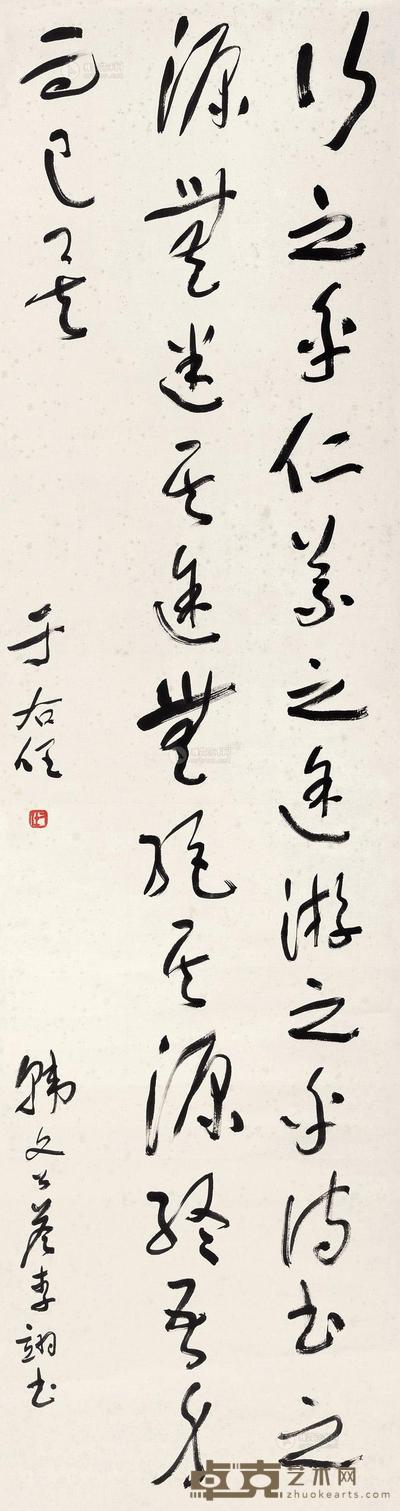 行之乎仁義之途游之乎詩書之
源無迷其途無絕其源終吾身
而已矣
于右任
韓文公答李翊書
卓克艺术网
zhuokearts.com